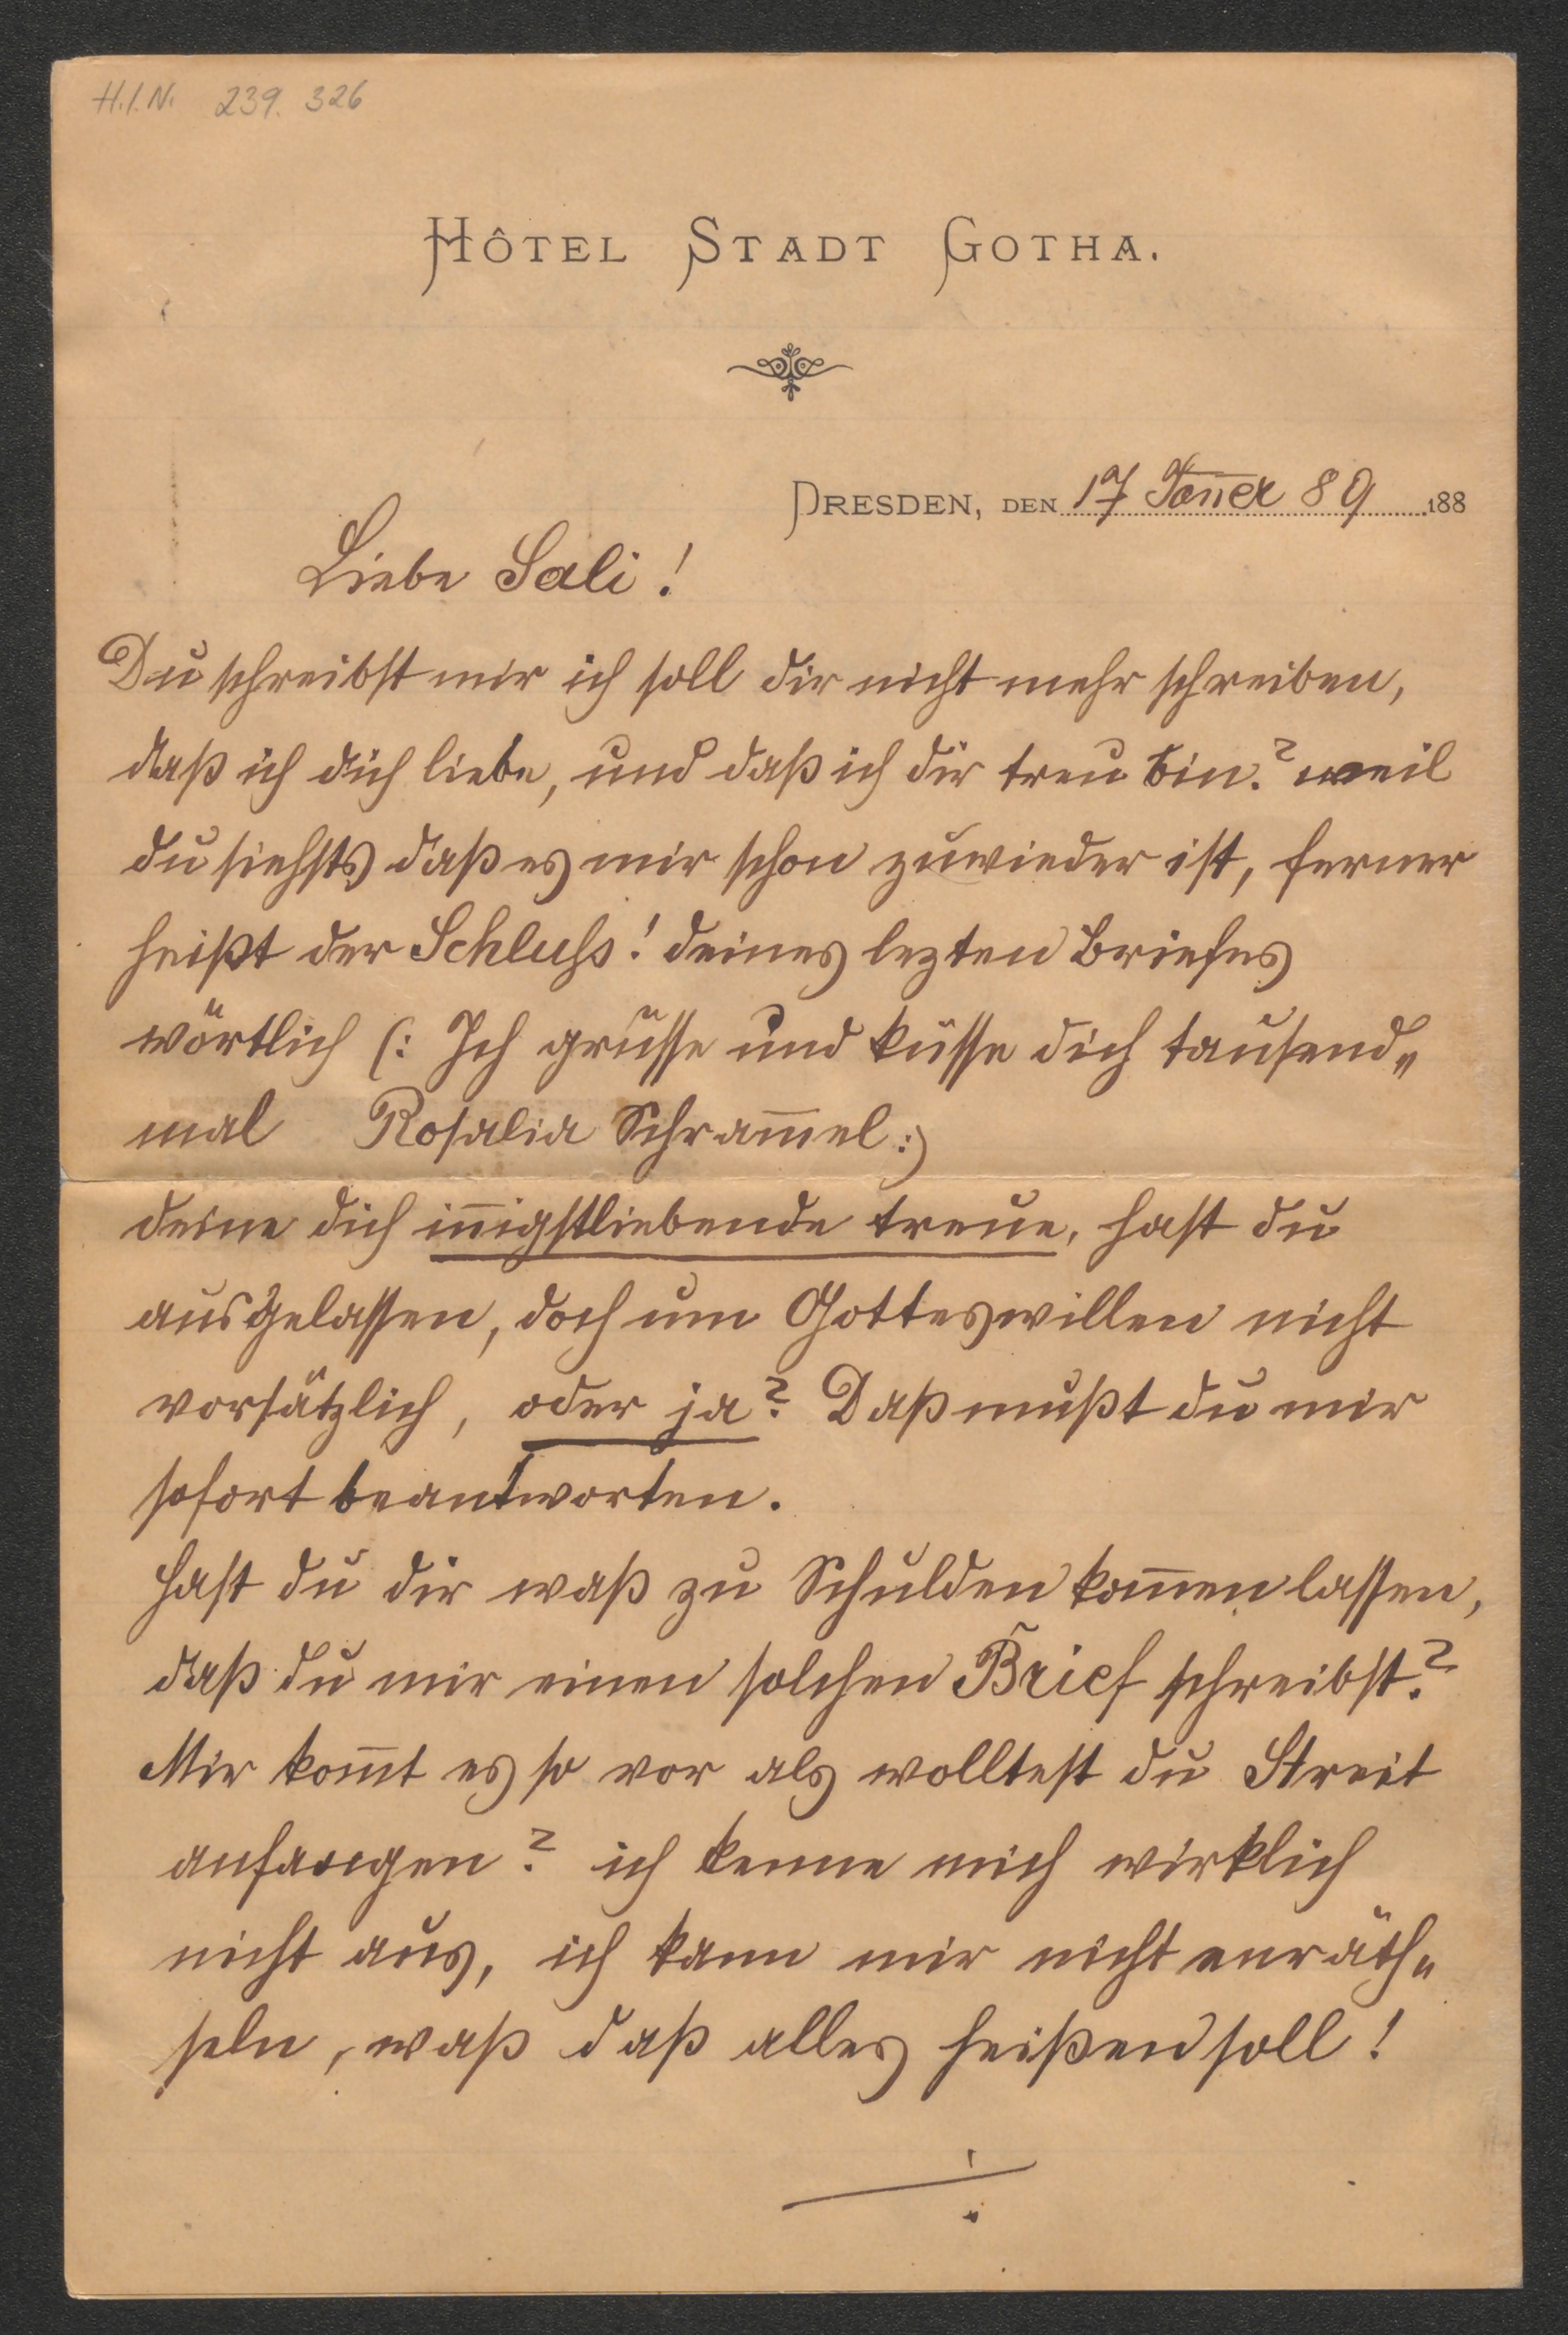 H.I.N. 239.326
HÔTEL STADT GOTHA.
DRESDEN, DEN 17 Jäner 89 188
Liebe Sali!
Du schreibst mir ich soll dir nicht mehr schreiben,
daß ich dich liebe, und daß ich dir treu bin? weil
du siehsts daß es mir schon zuwieder ist, ferner
heißt der Schluß! deines lezten Briefes
wörtlich (: Ich grüsse und küsse dich tausend„
mal Rosalia Schram̄el :)
deine dich in̄igstliebende treue, hast du
ausgelassen, doch um Gotteswillen nicht
vorsätzlich, oder ja? Daß mußt du mir
sofort beantworten.
Hast du dir waß zu Schulden kom̄en lassen,
daß du mir einen solchen Brief schreibst?
Mir kom̄t es so vor als wolltest du Streit
anfangen? ich kenne mich wirklich
nicht aus, ich kann mir nicht enräth„
seln, waß daß alles heißen soll!
./.